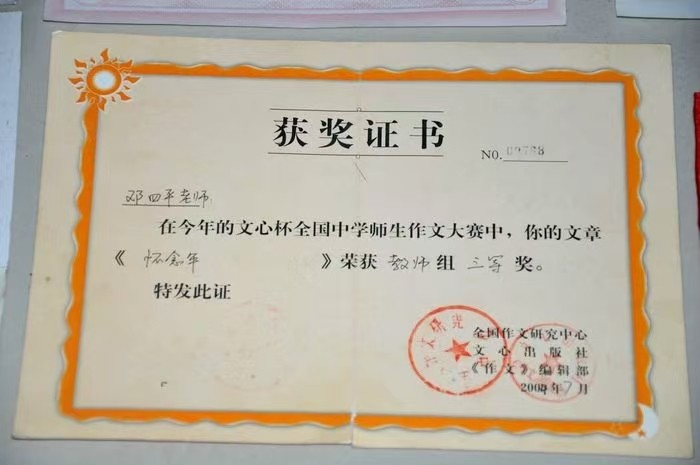 获奖证书
NO.
邓四平老师
在今年的文心杯全国中学师生作文大赛中，你的文章
《怀念年》荣获教师组三等奖。
特发此证
全国作文研究中心
文心出版社
《作文》编辑部
2004年7月